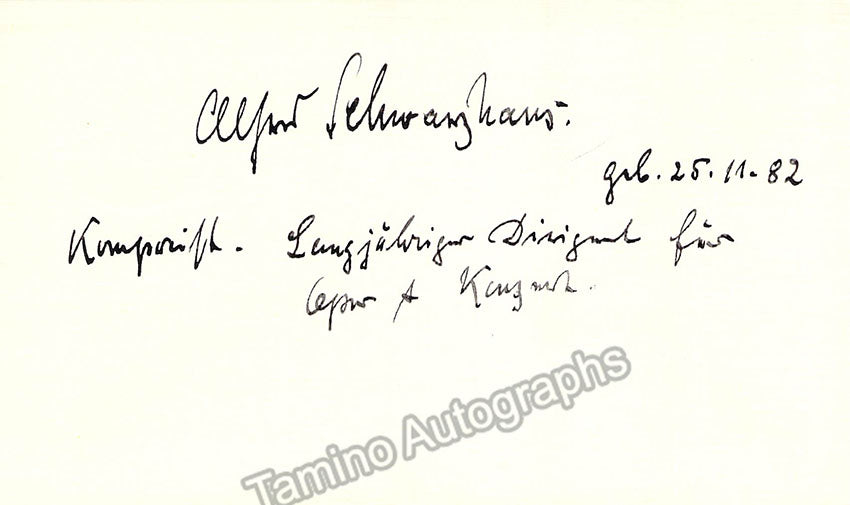 Alfred Schwarzhans.
geb. 25.11.82
Komponist. Langjähriger Dirigent für
Oper & Konzert.
Tamino Autographs